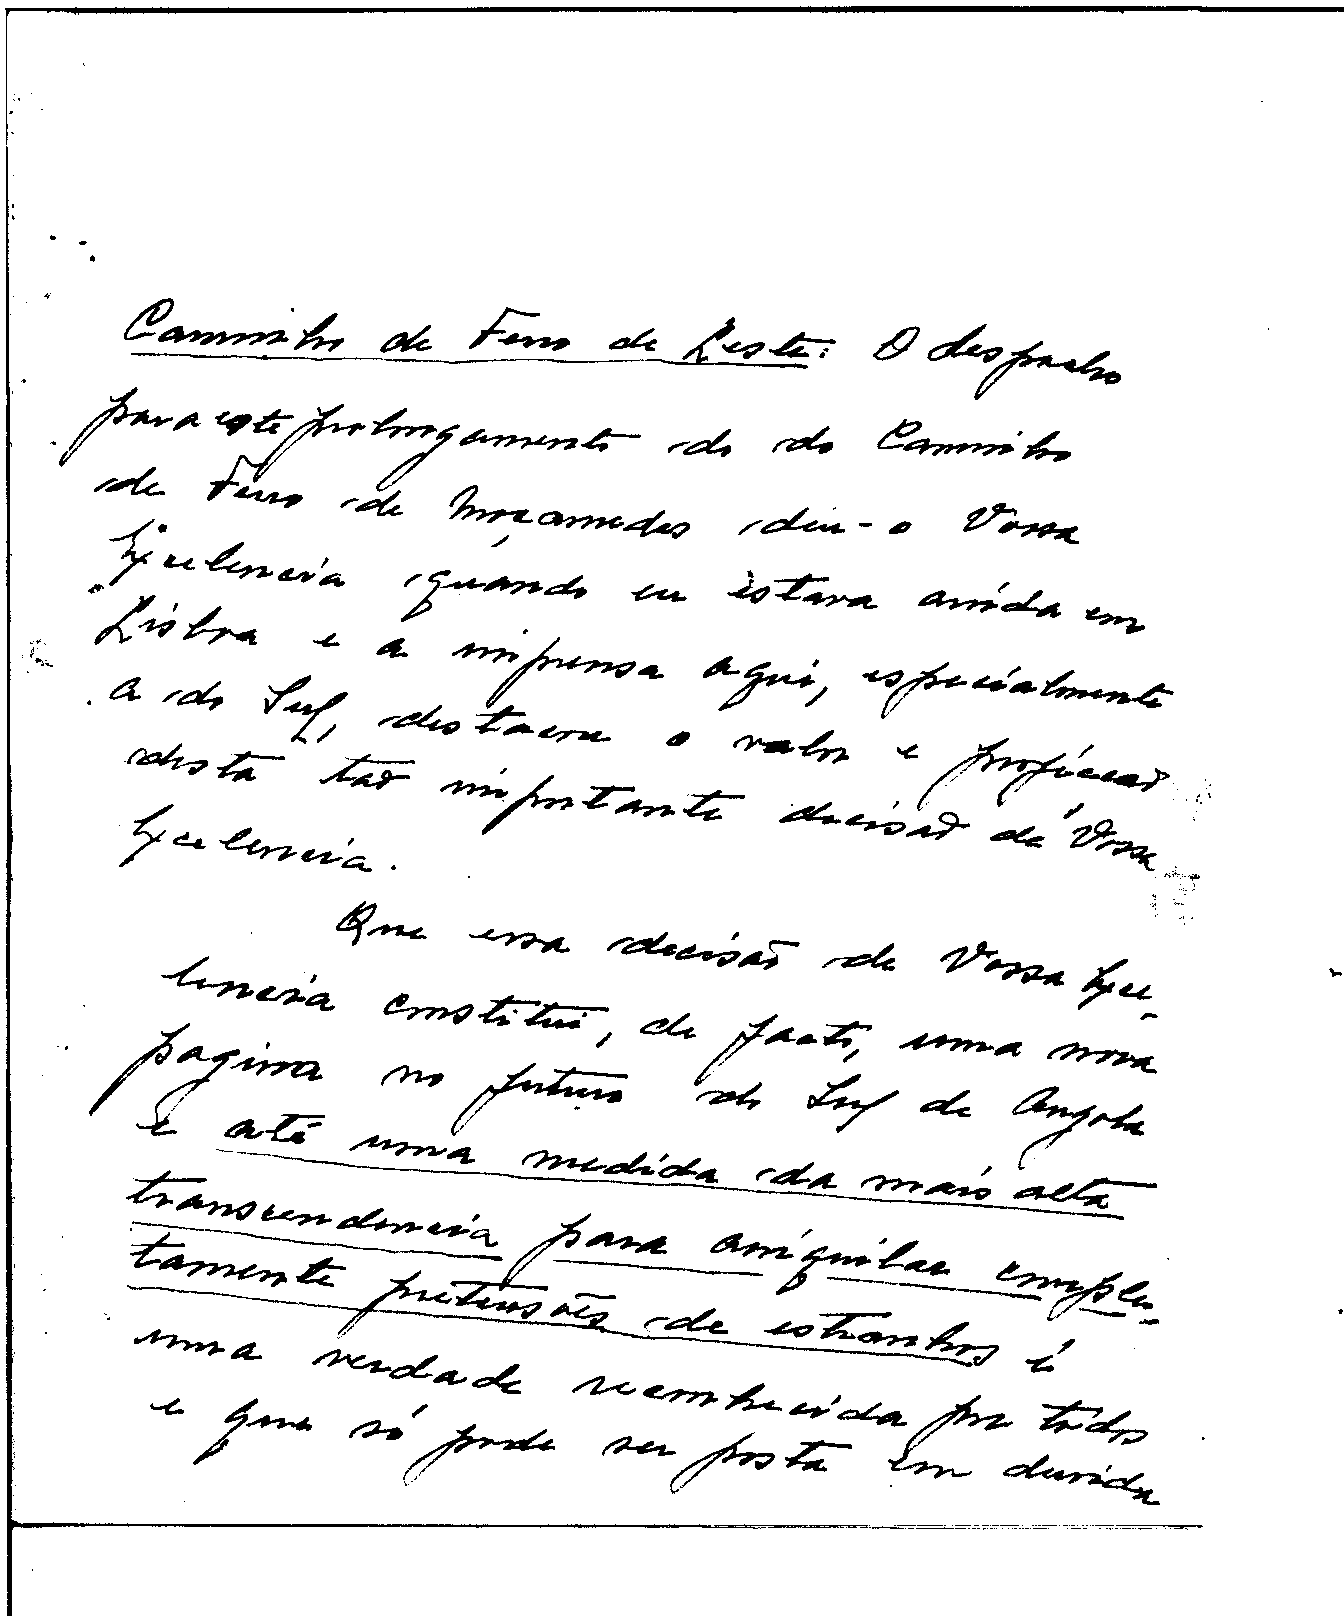 Caminho de Ferro de Leste: O despacho
para este prolongamento do do Caminho
de Ferro de Moçamedes deu-o Vossa
Excelencia quando eu estava ainda em
Lisboa e a imprensa aqui, especialmente
a do Sul, destacou o valor e projecção
desta tão importante decisão de Vossa
Excelencia.
Que essa decisão de Vossa Exce-
lencia constitui, de facto, uma nova
pagina no futuro do Sul de Angola
e até uma medida da mais alta
transcendencia para aniquilar comple-
tamente pretensões de estranhos é
uma verdade reconhecida por todos
e que só pode ser posta em duvida